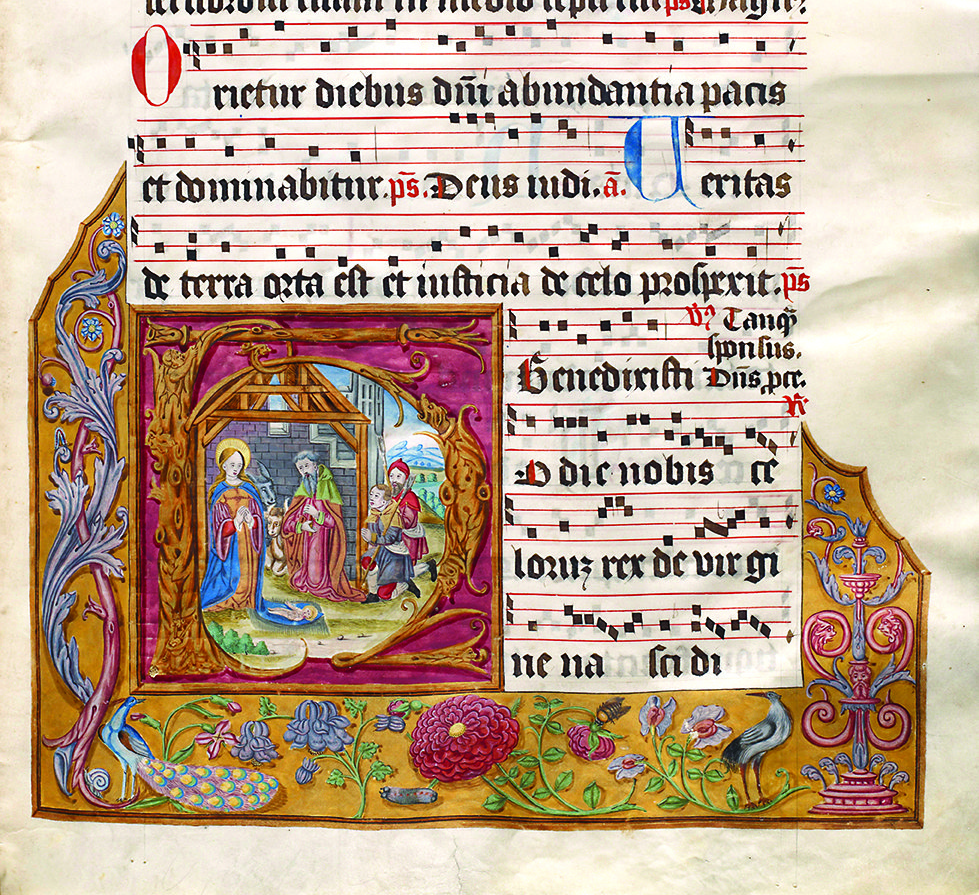 in medio
Orietur diebus dñi abundantia pacis
et dominabitur. ps̄. Deus iudi. ā. Veritas
de terra orta est et iusticia de celo prospexit. ps̄
℣ Tanq̃
sponsus.
Benedixisti Dñs pce.
℟
Hodie nobis ce
loruꝫ rex de vir gi
ne na sci di